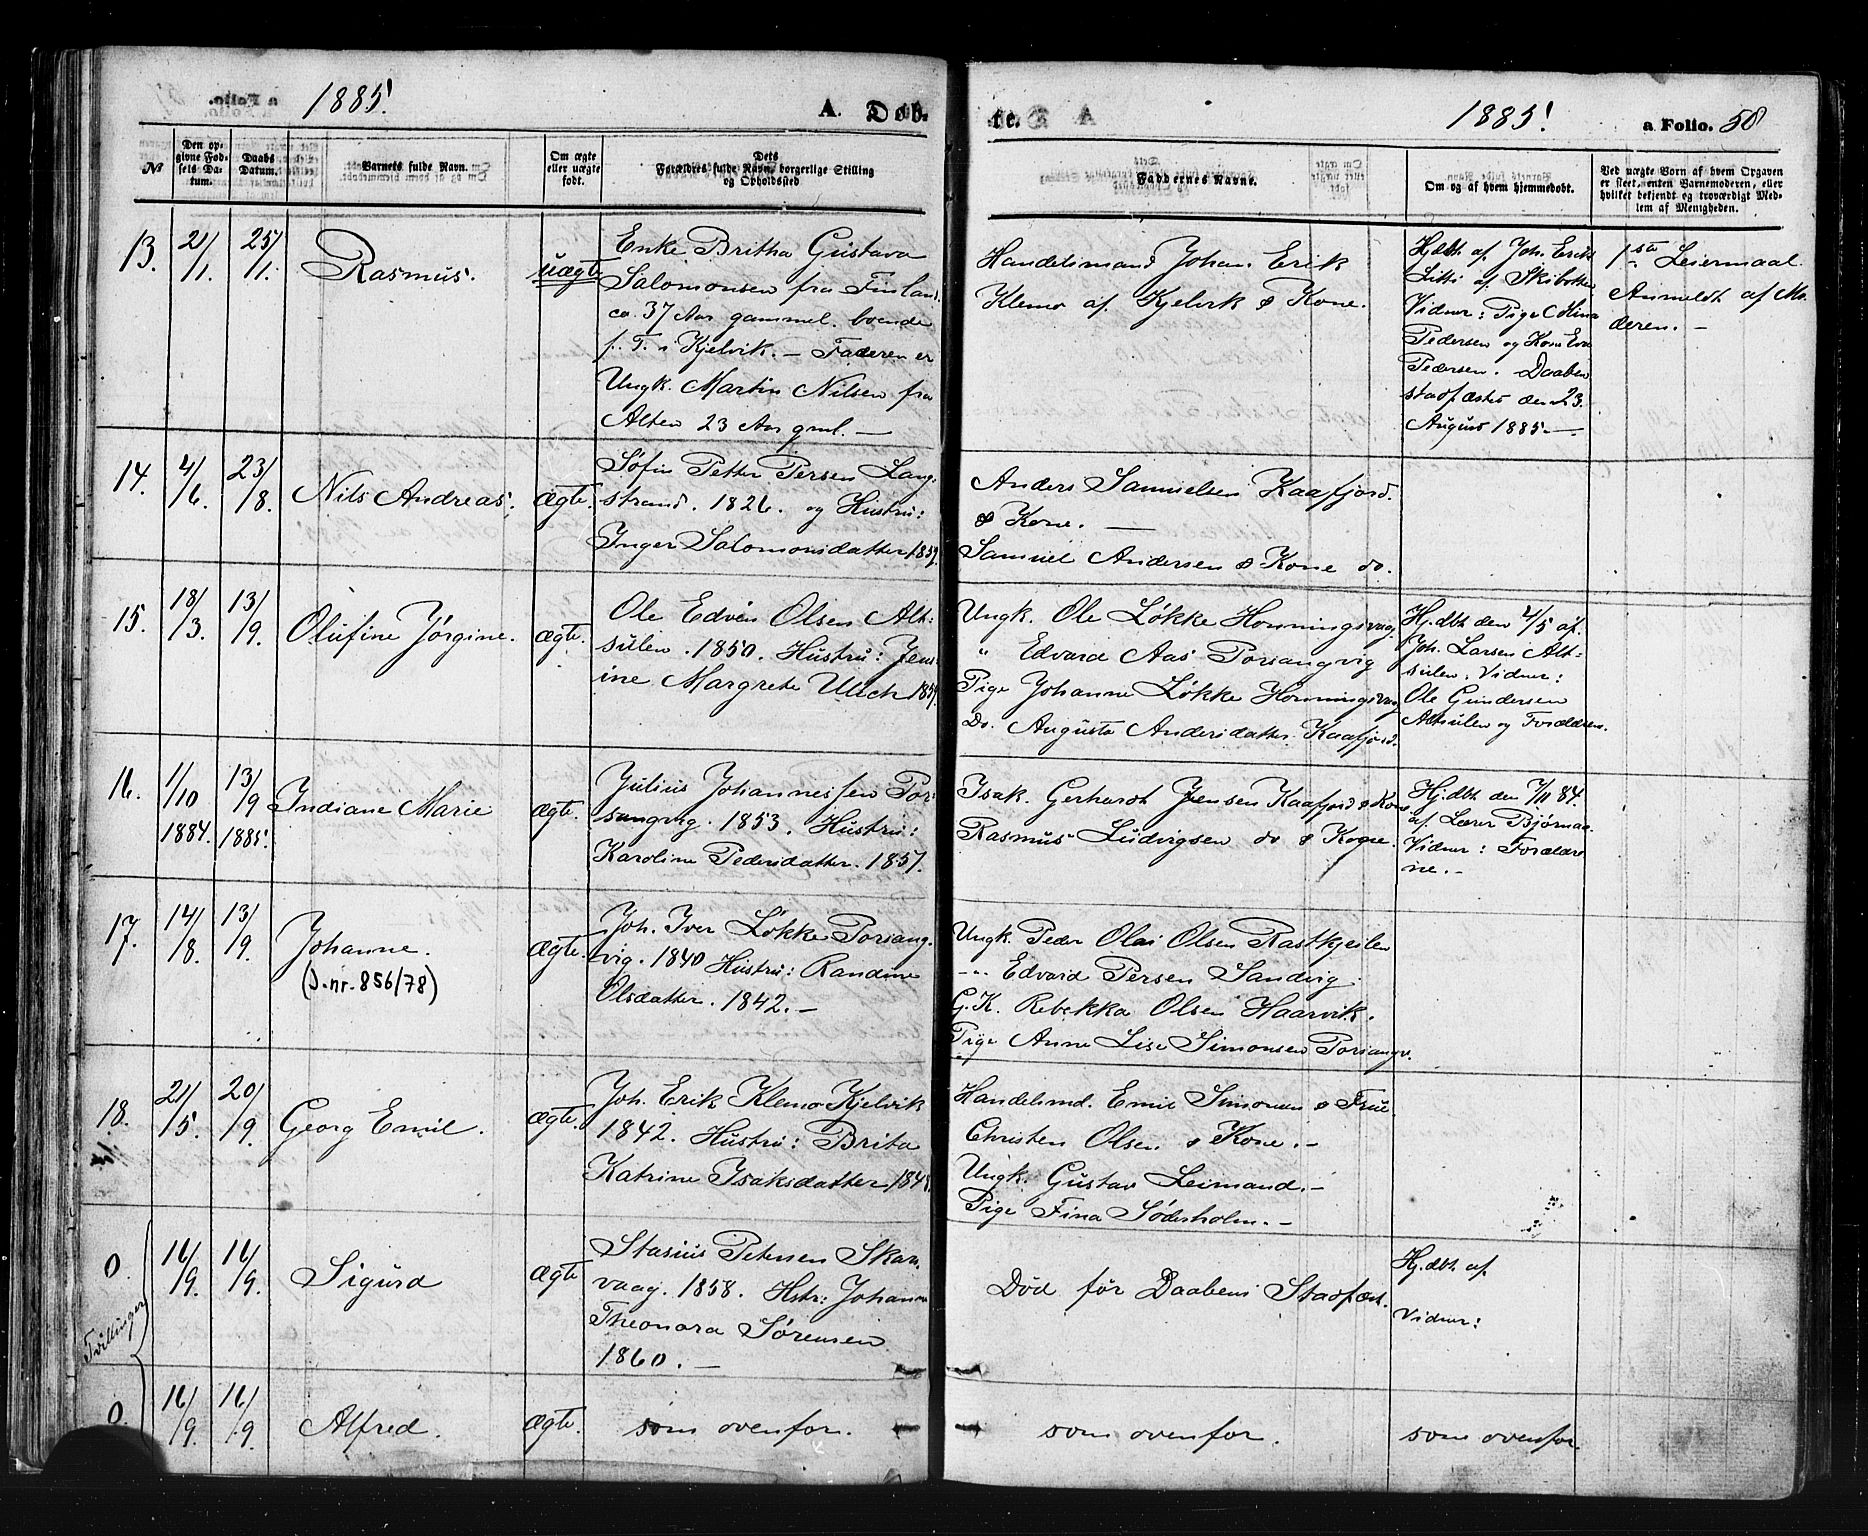 1885.
A. Døb-
№
Den op-
givne Fød-
sels Da-
tum.
Daabs
Datum.
Barnets fulde Navn.
Om ægte
eller uægte
født.
Dets
Forældres fulde Navn, borgerlige Stilling
og Opholdssted
13.
21/1.
25/1.
Rasmus.
uægte
Enke Britha Gustava
Salomonsen fra Finland.
ca. 37 Aar gammel. boende
f. T. i Kjelvik. — Faderen er
Ungk. Martin Nilsen fra
Alten 23 Aar gml. —
14.
4/6.
23/8.
Nils Andreas.
Ægte.
Søfin Petter Persen Lang-
strand. 1826. og Hustru:
Inger Salomonsdatter
15.
18/3.
13/9.
Olufine Jørgine.
ægte.
Ole Edvin Olsen Alt-
sulen. 1850. Hustru: Jens-
ine Margrete Ulich
16.
1/10
1884.
13/9
1885.
Indiane Marie
ægte.
Julius Johannessen Por-
sangvig. 1853. Hustru:
Karoline Pedersdatter. 1857.
17.
14/8.
13/9.
Johanne.
(J.nr. 856/78)
ægte.
Joh. Iver Løkke Porsang-
vig. 1840 Hustru: Randine
Olsdatter. 1842. —
18.
21/5.
20/9.
Georg Emil.
ægte.
Joh. Erik Klemo Kjelvik
1842. Hustru: Brita
Katrine Isaksdatter
Tvillinger
0.
16/9.
16/9.
Sigurd
Ægte
Stasius Petersen Skar-
vaag. 1858. Hstr: Johanna
Theonora Sørensen
1860. —
0.
16/9.
16/9.
Alfred.
ægte.
som ovenfor.
te.
1885.
a Folio. 58
Faddernes Navne.
Om og af hvem hjemmedøbt.
Ved uægte Børn af hvem Opgaven
er skeet, enten Barnemoderen, eller
hvilket bekjendt og troværdigt Med-
lem af Menigheden.
Handelsmand Johan Erik
Klemo af Kjelvik & Kone.
Hjdbt. af Joh. Erik
Litti af Skibotten
Vidner: Pige
Pedersen og Kone Eva
Pedersen. Daaben
stadfæstet den 23.
August 1885. —
1ste Leiermaal.
Anmeldt af Mo-
deren. —
Anders Samuelsen Kaafjord.
& Kone. —
Samuel Andersen & Kone do.
Ungk. Ole Løkke Honningsvaag
" Edvard Aas Porsangvig
Pige Johanne Løkke Honningsvaag
Do. Augusta Andersdatter. Kaafjord.
Hj.dbt. den 4/5 af.
Joh. Larsen Alt-
sulen. Vidner:
Ole Gundersen
Altsulen og Forældren.
Isak. Gerhardt Jensen Kaafjord & Kone
Rasmus Ludvigsen do & Kone.
Hj.dbt. den 7/11 84.
af. Lærer
Vidner: Forældre-
ne. —
Ungk. Peder Olai Olsen
—"— Edvard Persen Sandvig.
G.K. Rebekka Olsen Haarvik.
Pige Anne Lise Simonsen Porsangv.
Handelsmd. Emil Simonsen & Frue
Christen Olsen. & Kone. —
Ungk. Gustav Leimand. —
Pige Fina Søderholm. —
Død før Daabens Stadfæst.
Hj.dbt. af
Vidner:
som ovenfor.
som ovenfor.